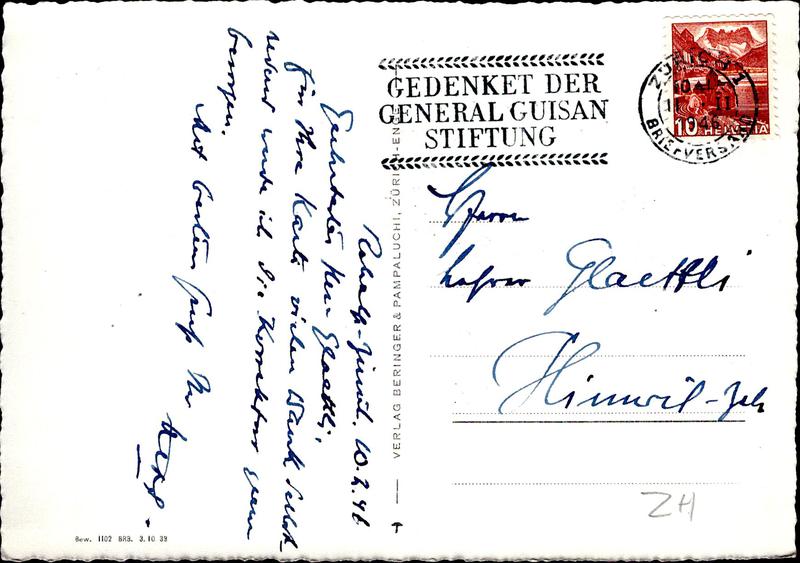 GEDENKET DER
GENERAL GUISAN
STIFTUNG
ZÜRICH 1
1946
BRIEFVERSAND
10 HELVETIA
Herrn
Lehrer Glaettli
Hinwil-Zch
ZH
VERLAG BERINGER & PAMPALUCHI, ZÜRICH-ENGE
Zürich, 10.2.46
Geehrter Herr Glaettli,
für Ihre Karte vielen Dank. Selbst
redend werde ich die Korrektur gern
besorgen.
Mit bestem Gruss Ihr
Bew. 1102 BRB. 3.10.39